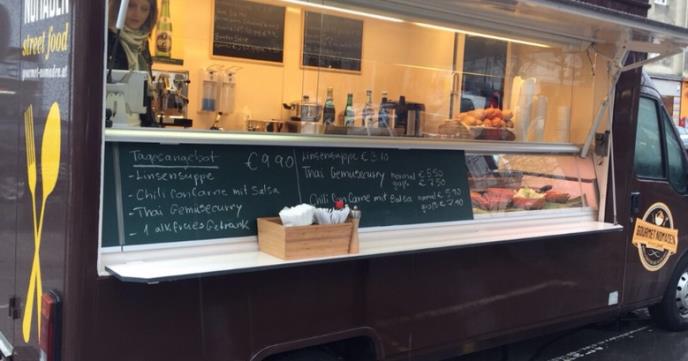 NOMADEN
street food
gourmet-nomaden.at
Tagesangebot €9,90
- Linsensuppe
- Chili Con Carne mit Salsa
- Thai Gemüsecurry
- 1 alkfreies Getränk
Linsensuppe €3,10
Thai Gemüsecurry normal €5,50
groß €7,50
Chili Con Carne mit Salsa normal €5,90
groß €7,90
GOURMET NOMADEN